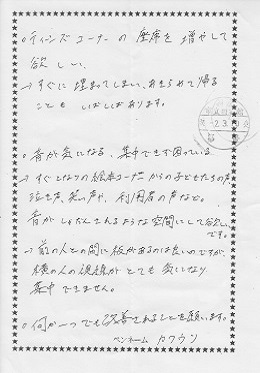 ○ティーンズコーナーの座席を増やして
欲しい。
→すぐに埋まってしまい、あきらめて帰る
ことも しばしばあります。
○音が気になる、集中できず困っている
→すぐとなりの絵本コーナーからの子どもたちの声
泣き声、笑い声や、利用者の声など。
音がしゃだんされるような空間にして欲しい
です。
→前の人との間に板があるのは良いのですが、
横の人の視線がとても気になり
集中できません。
○何か一つでも改善されることを願います。
ペンネーム カワウソ